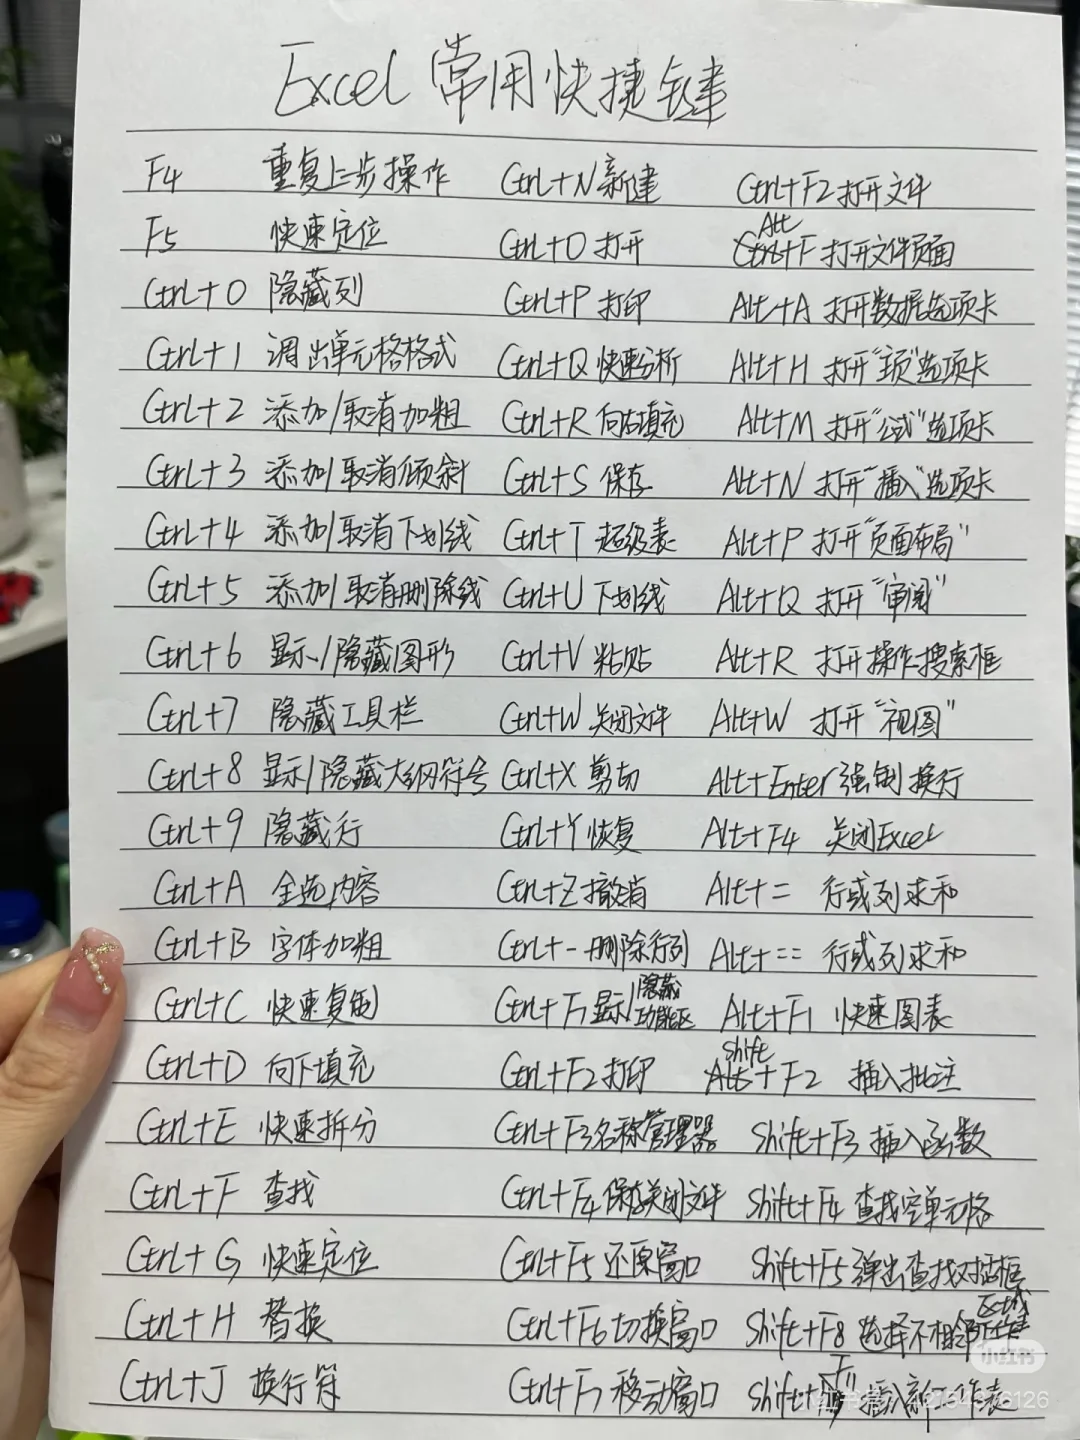 Excel 常用快捷键
F4 重复上步操作 Ctrl+N 新建 Ctrl+F2 打开文件
F5 快速定位 Ctrl+O 打开 Alt+F 打开文件页面
Ctrl+0 隐藏列 Ctrl+P 打印 Alt+A 打开数据选项卡
Ctrl+1 调出单元格格式 Ctrl+Q 快速分析 Alt+H 打开"主页"选项卡
Ctrl+2 添加/取消加粗 Ctrl+R 向右填充 Alt+M 打开"公式"选项卡
Ctrl+3 添加/取消倾斜 Ctrl+S 保存 Alt+N 打开"插入"选项卡
Ctrl+4 添加/取消下划线 Ctrl+T 超级表 Alt+P 打开"页面布局"
Ctrl+5 添加/取消删除线 Ctrl+U 下划线 Alt+Q 打开"审阅"
Ctrl+6 显示/隐藏图形 Ctrl+V 粘贴 Alt+R 打开操作搜索框
Ctrl+7 隐藏工具栏 Ctrl+W 关闭文件 Alt+W 打开"视图"
Ctrl+8 显示/隐藏大纲符号 Ctrl+X 剪切 Alt+Enter 强制换行
Ctrl+9 隐藏行 Ctrl+Y 恢复 Alt+F4 关闭Excel
Ctrl+A 全选内容 Ctrl+Z 撤消 Alt+= 行或列求和
Ctrl+B 字体加粗 Ctrl+- 删除行列 Alt+== 行或列求和
Ctrl+C 快速复制 Ctrl+F1 显示/隐藏功能区 Alt+F1 快速图表
Ctrl+D 向下填充 Ctrl+F2 打印 Shift+F2 插入批注
Ctrl+E 快速拆分 Ctrl+F3 名称管理器 Shift+F3 插入函数
Ctrl+F 查找 Ctrl+F4 保存关闭文件 Shift+F4 查找空单元格
Ctrl+G 快速定位 Ctrl+F5 还原窗口 Shift+F5 弹出查找对话框
Ctrl+H 替换 Ctrl+F6 切换窗口 Shift+F8 选择不相邻
Ctrl+J 换行符 Ctrl+F7 移动窗口 Shift+F11 插入新工作表
小红书